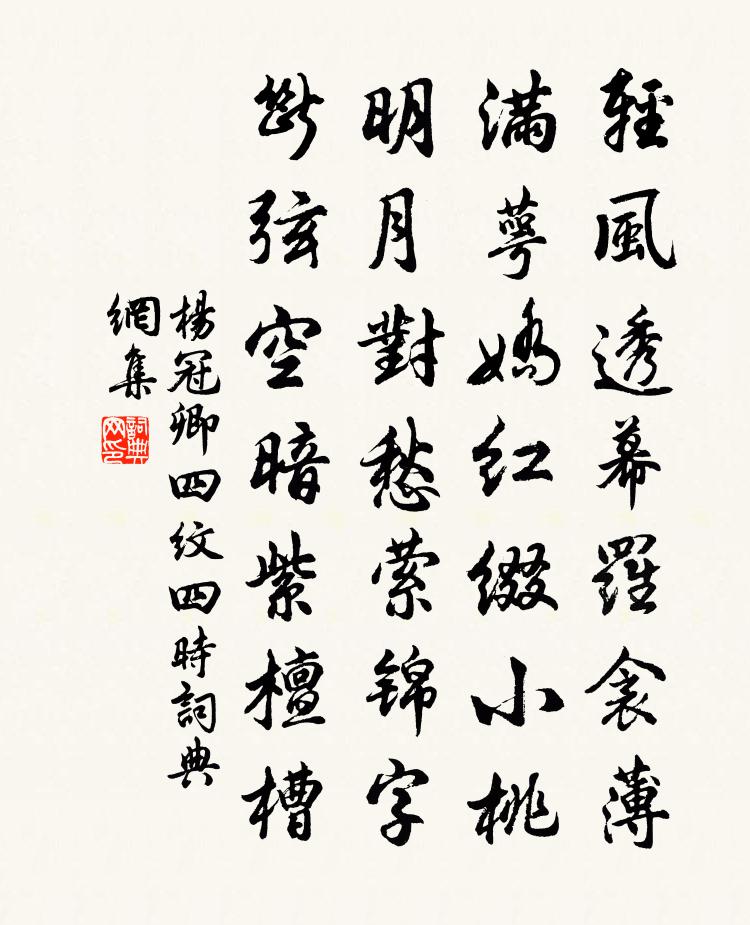 輕風透幕羅衾薄
滿萼嬌紅綴小桃
明月對愁縈錦字
斷弦空暗紫檀槽
楊冠卿四紋四時詞典
網集
詞典
网印